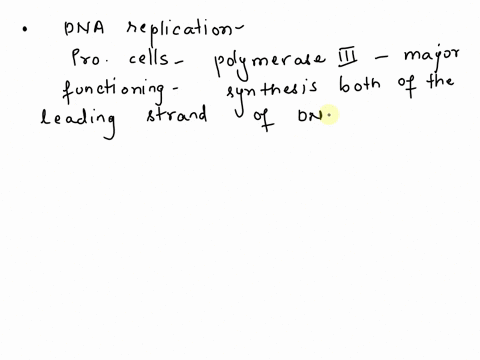 • DNA replication-
Pro. cells - polymerase III - major
functioning - synthesis both of the
leading strand of DN